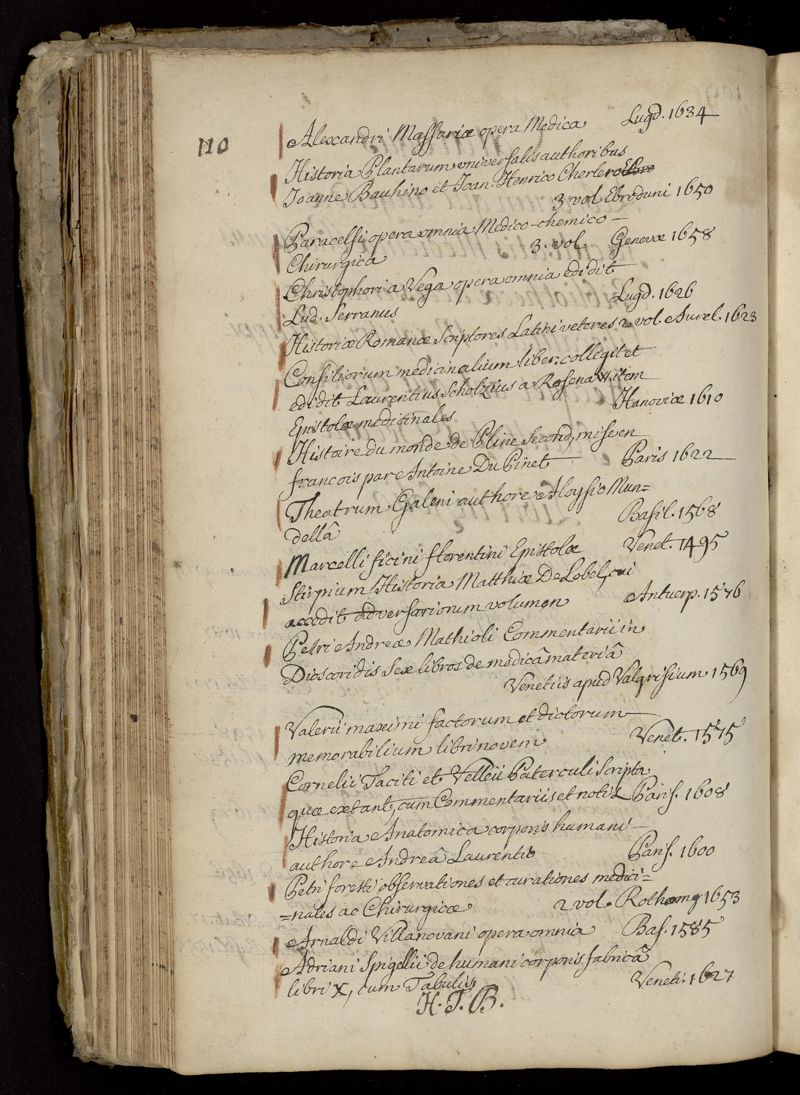 110
Alexandri Massariæ opera Medica Lugd. 1634
Historia Plantarum universalis authoribus
Joanne Bauhino et Joan. Henrico Cherlero
3 vol Ebroduni 1650
Paracelsi opera omnia Medico-chemico-
Chirurgica 3. vol. Genevæ 1658
Christophori a Vega opera omnia edidit
Lud. Serranus Lugd. 1626
Historiæ Romanæ Scriptores Latini veteres 2 vol. Aurel. 1623
Consiliorum medicinalium liber, collegit et
edidit Laurentius Scholzius a Rosenaw. item
Epistolæ medicinales Hanoviæ 1610
Histoire du monde de Pline Second, mise en
francois par Antoine Du Pinet Paris 1622
Theatrum Galeni authore Aloysio Mun=
dellâ Basil. 1568
Marcelli ficini florentini Epistolæ Venet. 1495
Stirpium Historia Matthiæ De Lobel, cui
accedit adversariorum volumen Antuerp. 1576
Petri Andreæ Mathioli Commentarii in
Dioscoridis sex libros de medicâ materiâ
Venetiis apud Valgrisium 1569
Valerii maximi factorum et dictorum
memorabilium libri novem Venet. 1575
Cornelii Taciti et Velleii Paterculi scripta
quæ extant, cum Commentariis et notis Paris. 1608
Historia Anatomica corporis humani
authore Andreâ Laurentio Paris. 1600
Petri foresti observationes et curationes medici=
=nales ac Chirurgicæ 2 vol. Rothomg 1653
Arnaldi Villanovani opera omnia Bas. 1585
Adriani Spigellii de humani corporis fabricâ
libri X, cum Tabulis Veneti. 1627
H. T. B.